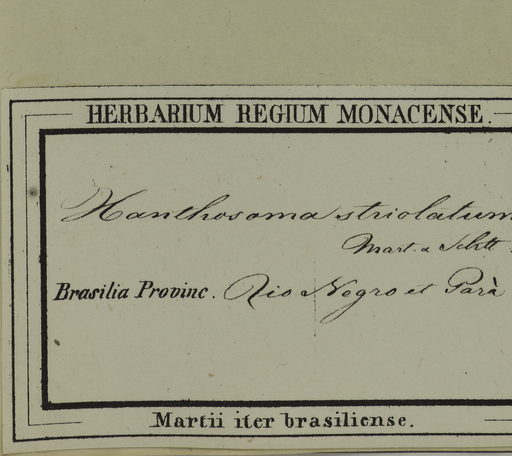 HERBARIUM REGIUM MONACENSE.
Xanthosoma striolatum
Mart. & Schtt.
Brasilia Provinc. Rio Negro et Parà
Martii iter brasiliense.